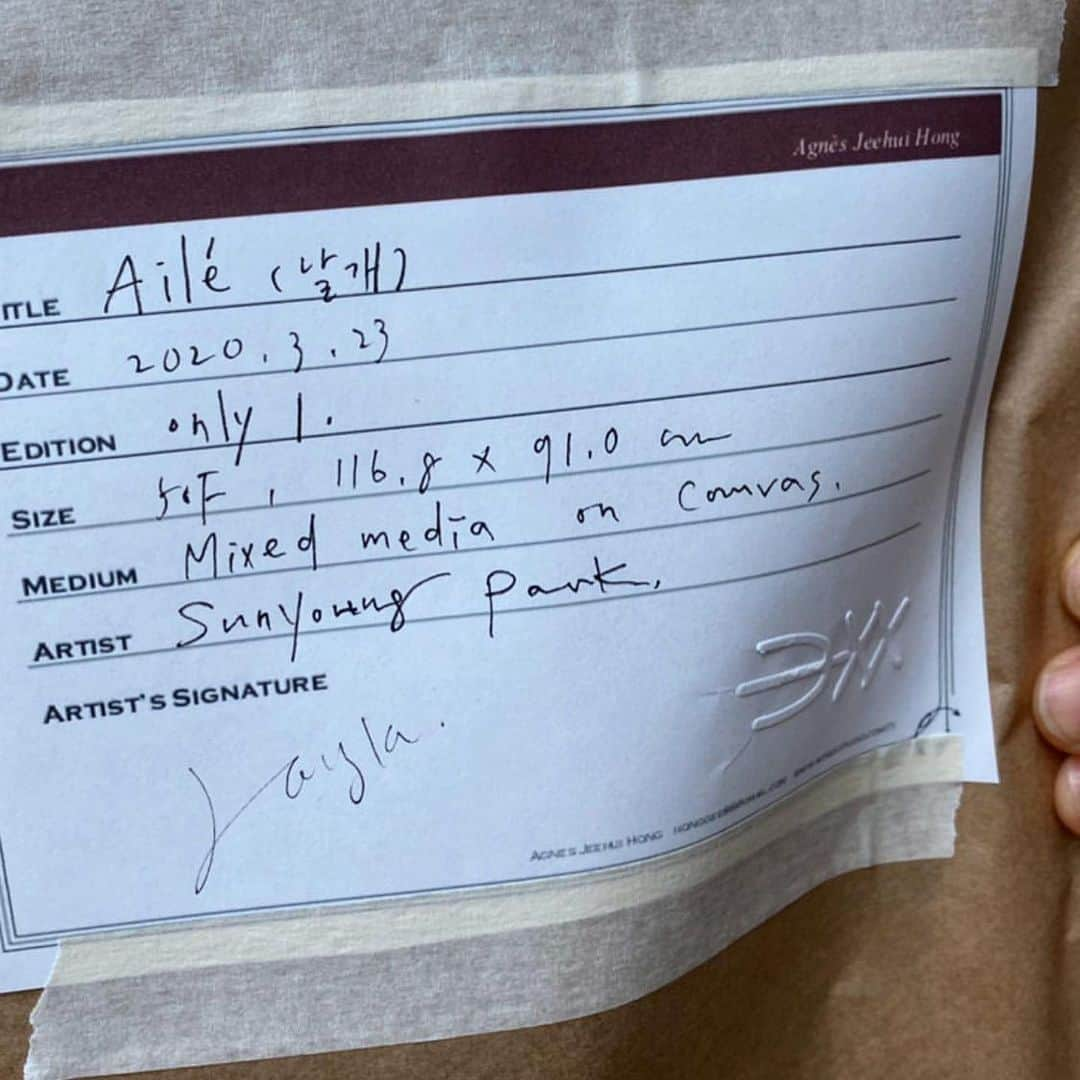 Agnès Jeehui Hong
ITLE Ailé (날개)
DATE 2020.3.23
EDITION only 1.
SIZE 50F, 116.8 x 91.0 cm
MEDIUM Mixed media on Canvas.
ARTIST Sunyoung Park.
ARTIST'S SIGNATURE
Layla.
AGNES JEEHUI HONG